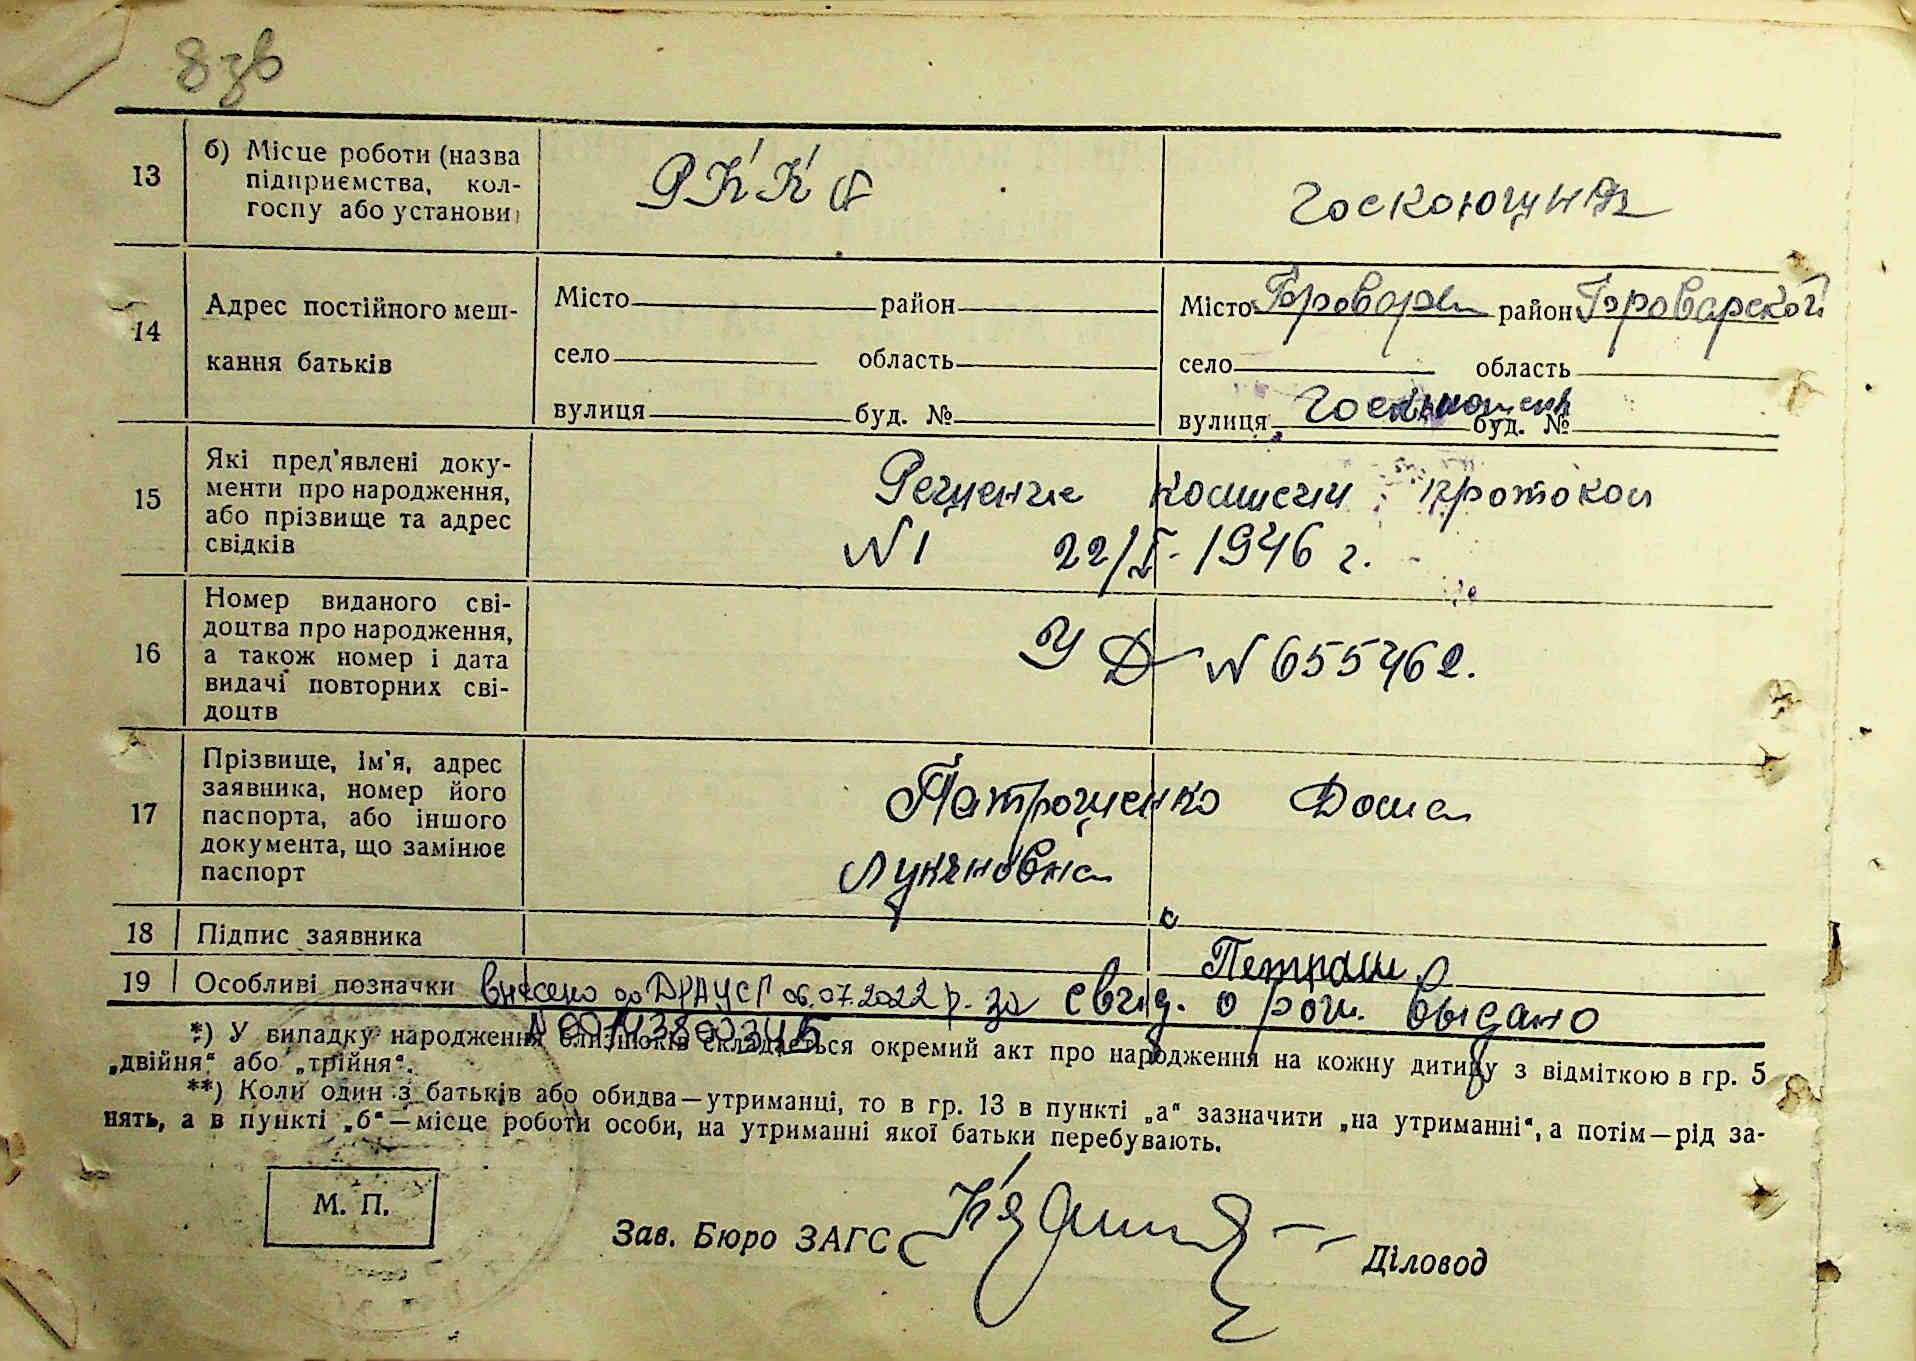 8 зв
13
б) Місце роботи (назва
підприємства, кол-
госпу або установи)
РККА
14
Адрес постійного меш-
кання батьків
Місто район
село область
вулиця буд. №
Місто Бровари район Броварской
село область
вулиця буд. №
15
Які пред'явлені доку-
менти про народження,
або прізвище та адрес
свідків
Решение комисии протокол
N 1 22/I- 1946 г.
16
Номер виданого сві-
доцтва про народження,
а також номер і дата
видачі повторних сві-
доцтв
УД N 655462.
17
Прізвище, ім'я, адрес
заявника, номер його
паспорта, або іншого
документа, що замінює
паспорт
Патрошенко Дома
Лукяновна
18
Підпис заявника
19
Особливі позначки внесено до ДРАЦСГ 06.07.2022 р. за
№ 00143800345
свид. о рож. выдано
*) У випадку народження близнюків складається окремий акт про народження на кожну дитину з відміткою в гр. 5
„двійня“ або „трійня“.
**) Коли один з батьків або обидва—утриманці, то в гр. 13 в пункті „а“ зазначити „на утриманні“, а потім—рід за-
нять, а в пункті „б“—місце роботи особи, на утриманні якої батьки перебувають.
М. П.
Зав. Бюро ЗАГС
Діловод